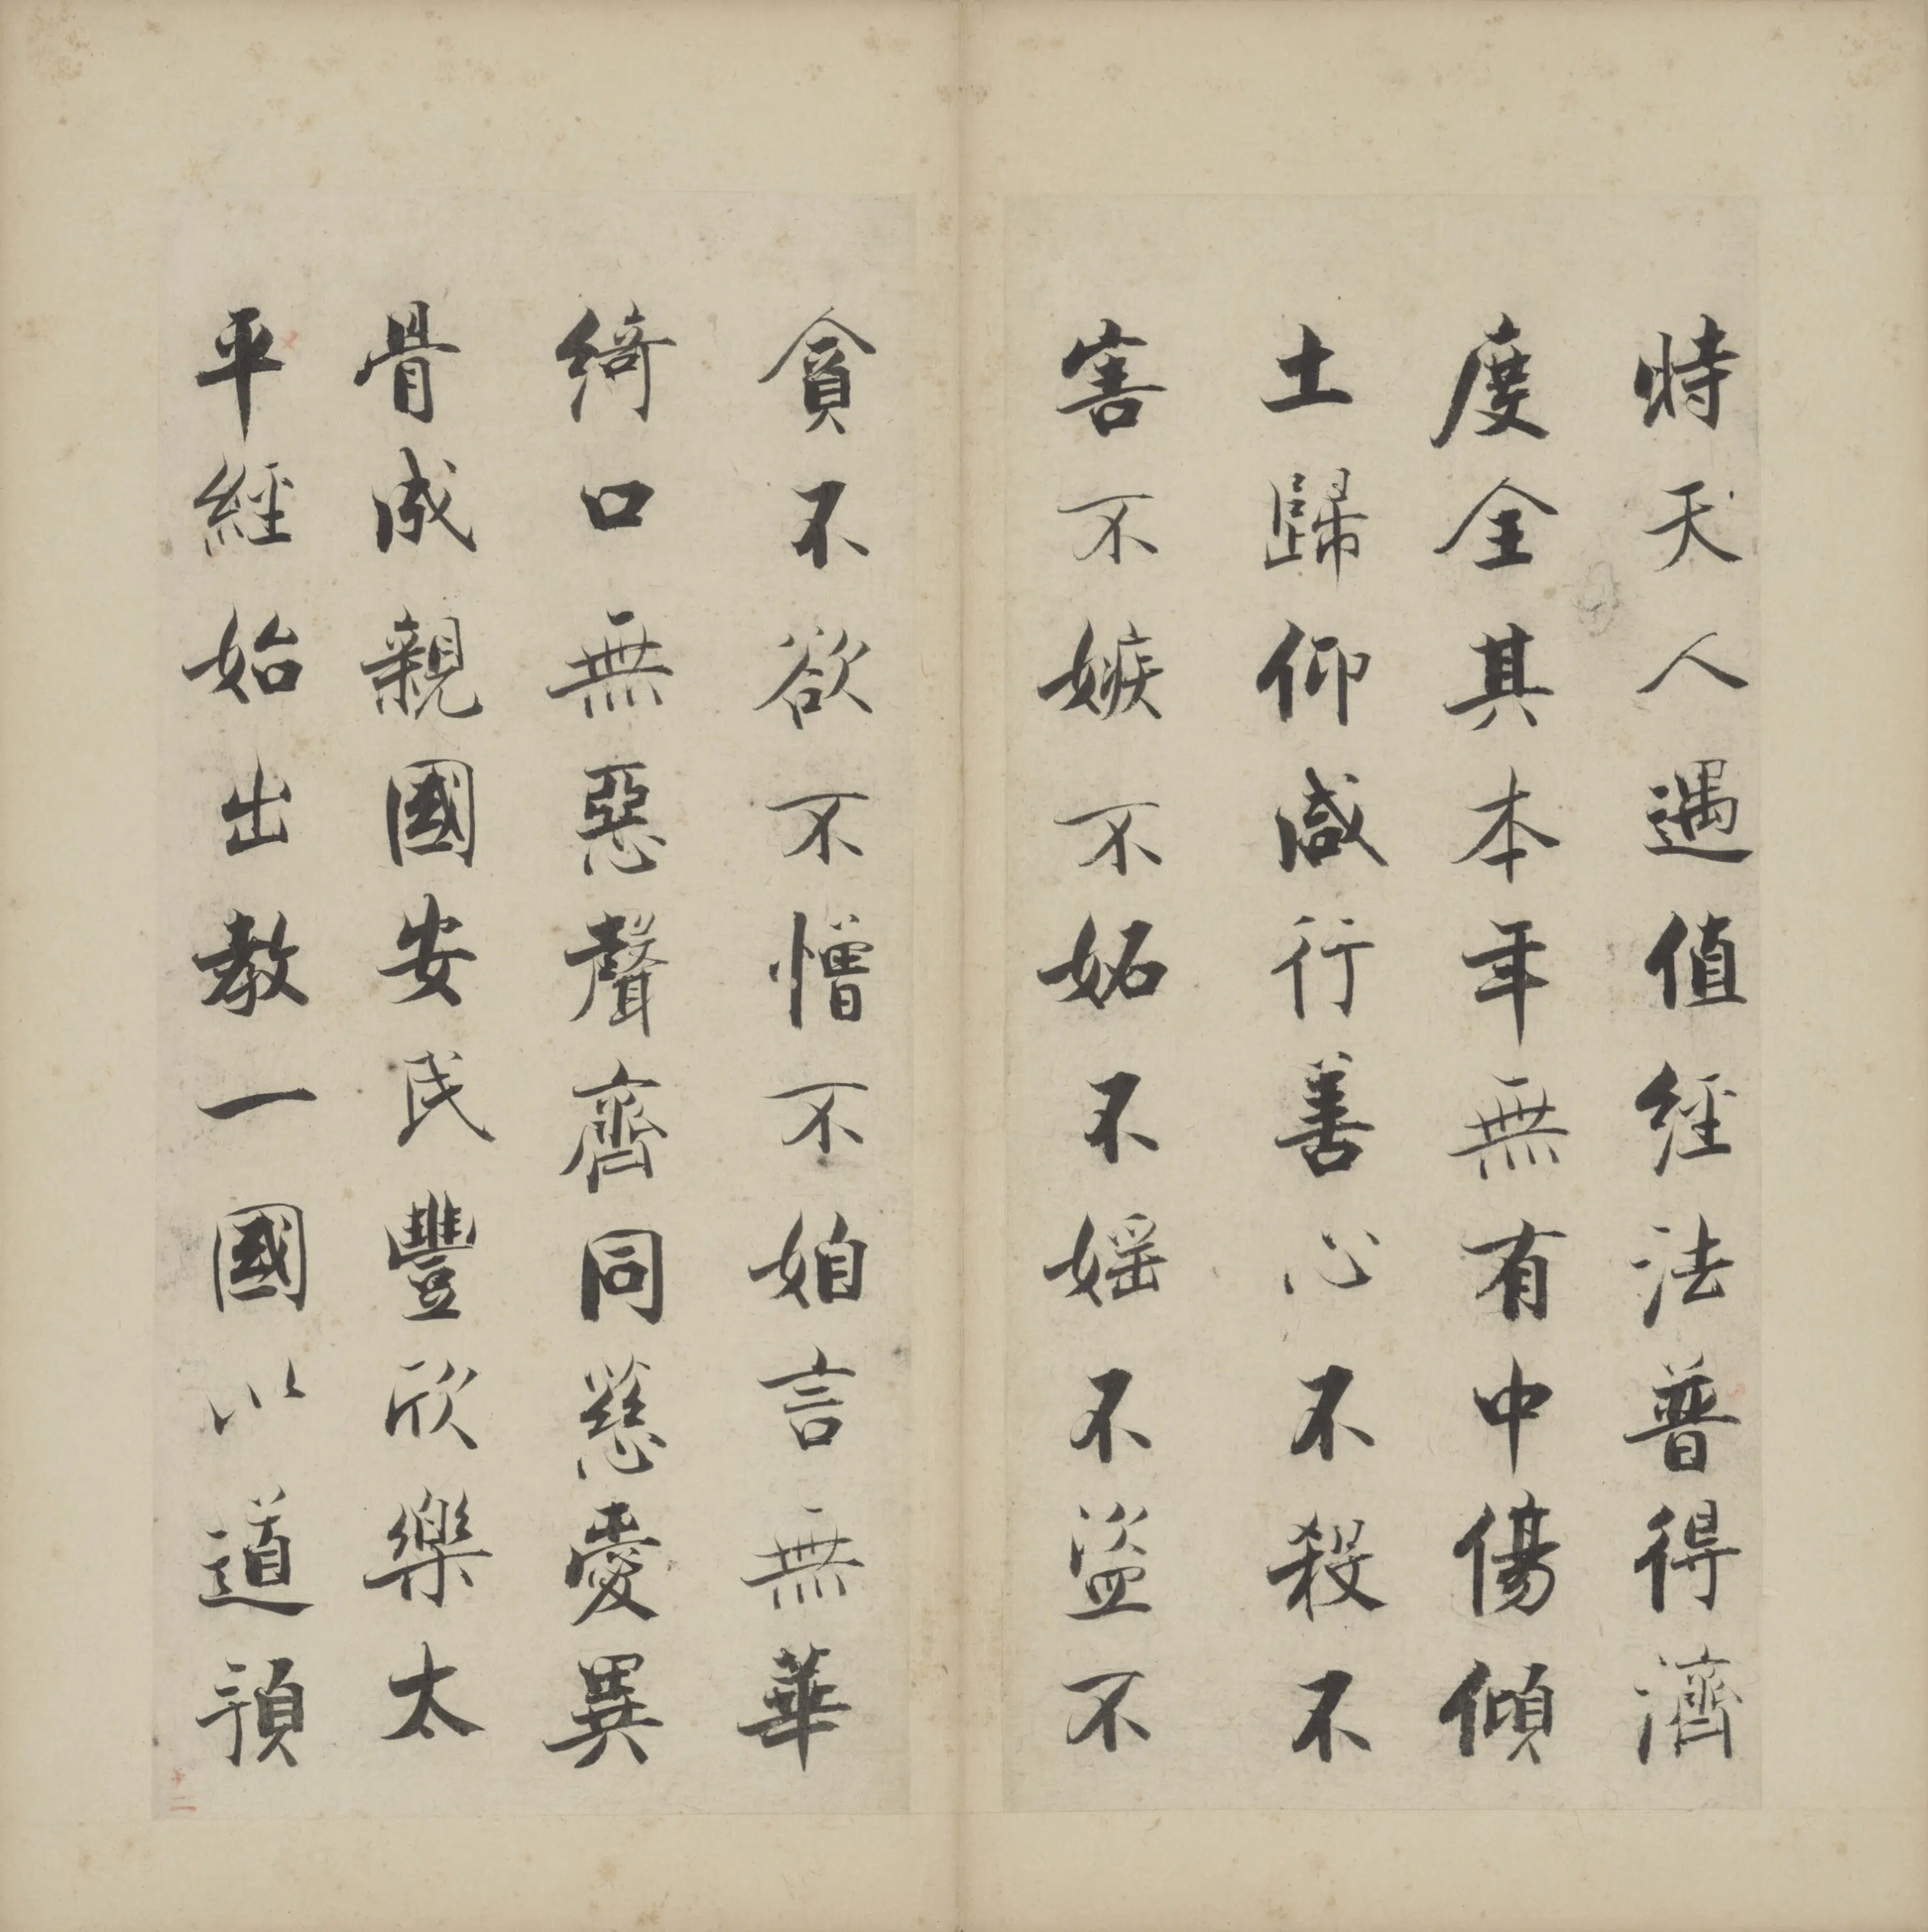 時天人遇值經法普得濟
度全其本年無有中傷傾
土歸仰咸行善心不殺不
害不嫉不妬不婬不盜不
貪不欲不憎不妲言無華
綺口無惡聲齊同慈愛異
骨成親國安民豐欣樂太
平經始出教一國以道預
十二